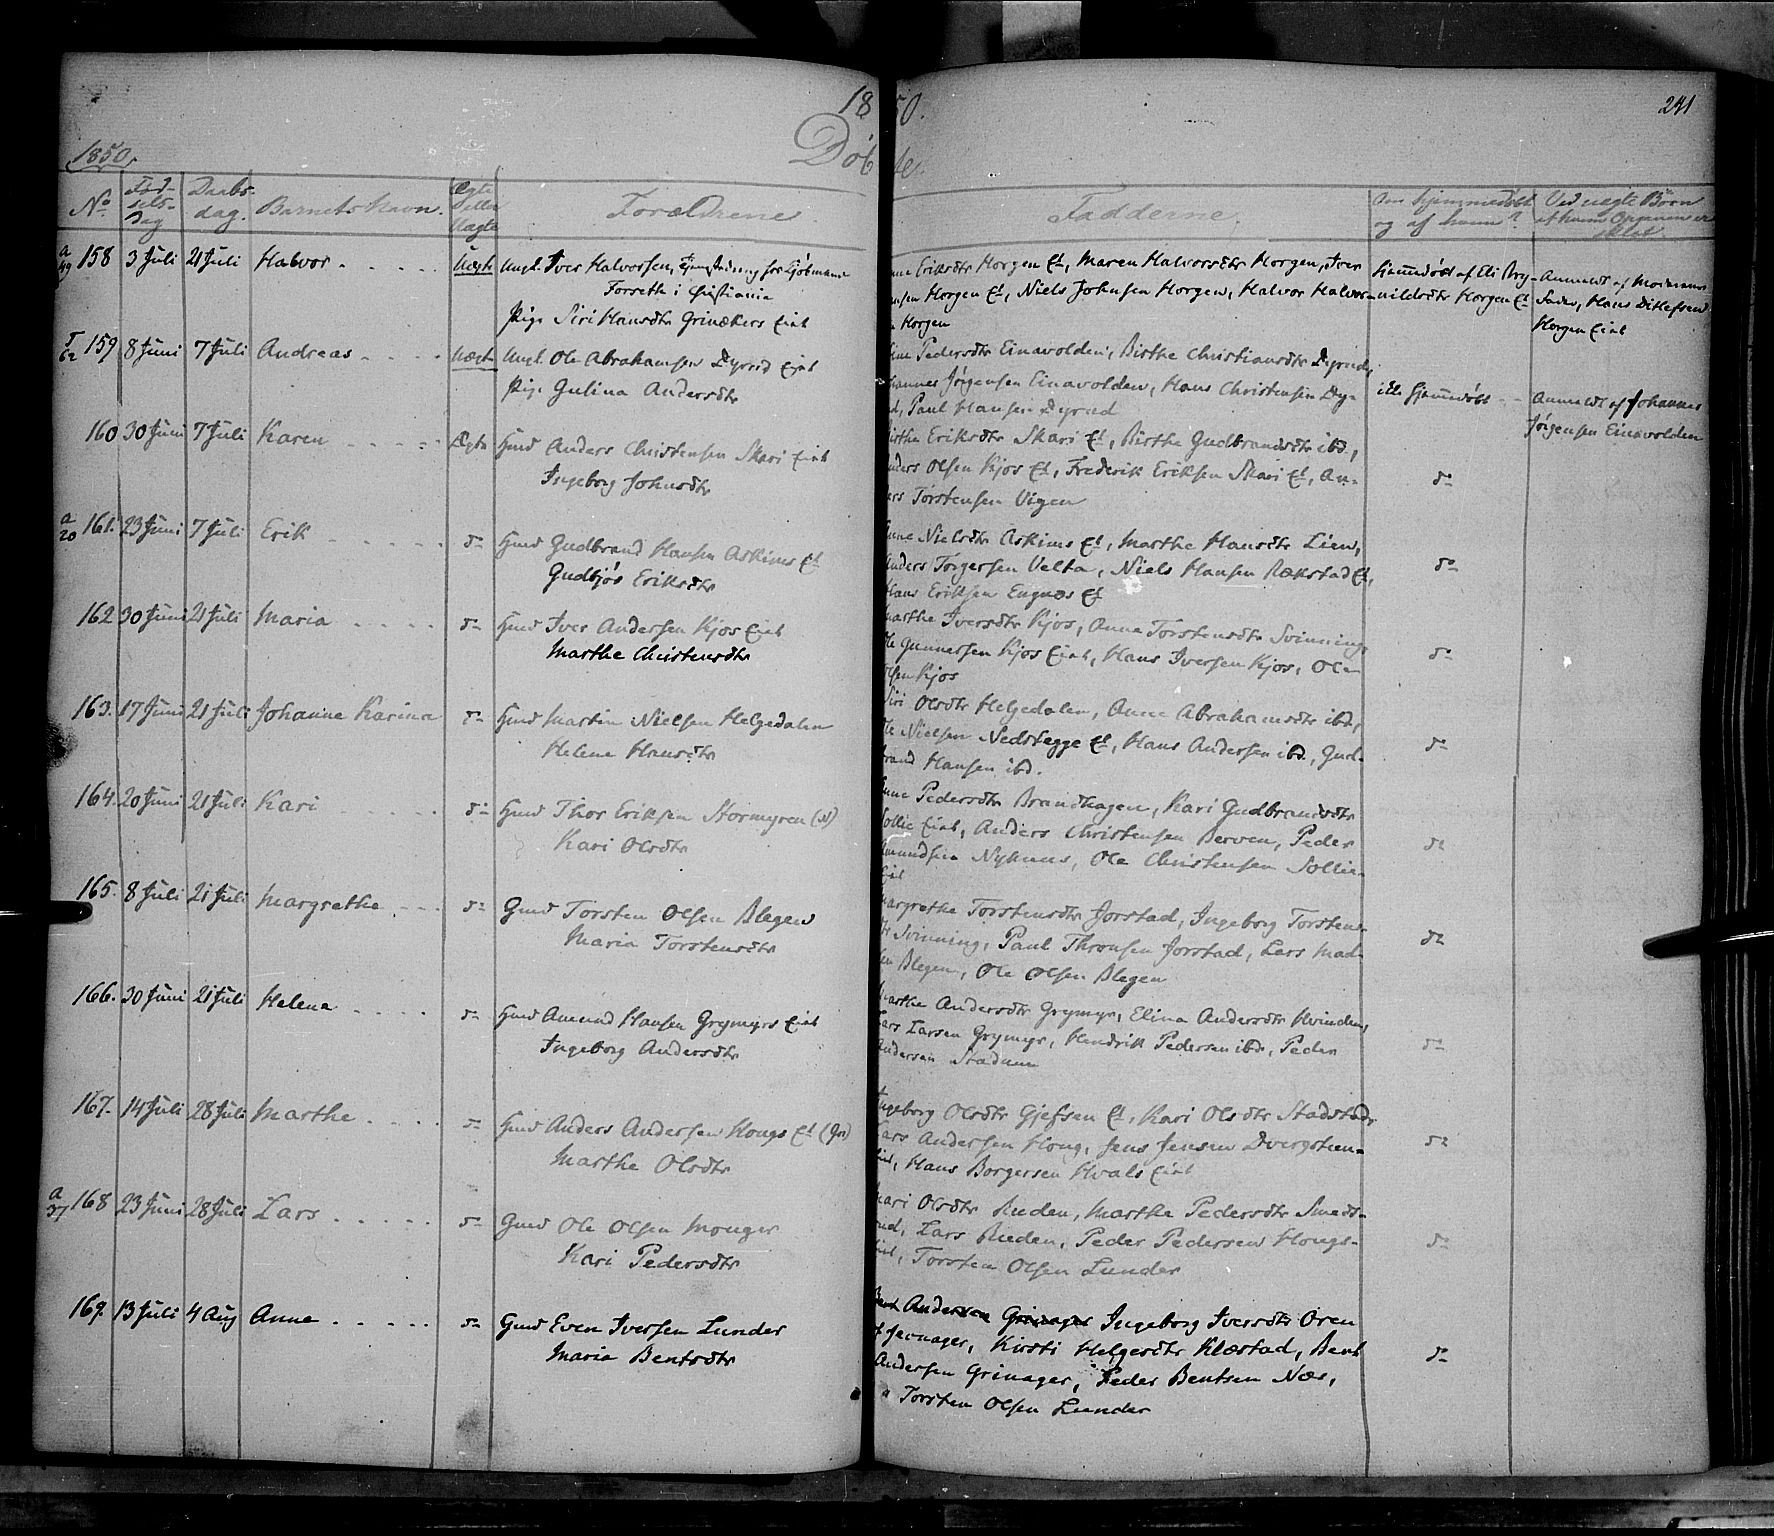 1850.
241
1850.
Døbte.
No
Fødselsdag
Daabsdag.
Barnets Navn.
Ægte eller Uægte
Forældrene.
Fadderne.
Om hjemmedøbt og af hvem?
Ved uægte Børn af hvem Opgaven er
a 49 158 3 Juli 21 Juli Halvor Uægte Ungk. Iver Halvorsen, for Kjøbmand
Forseth i Christiania
Pige Siri Hansdtr Grinakers Eiet
Eriksdtr Horgen Et, Maren Halvorsdtr Horgen, Iver
Horgen Et, Niels Johnsen Horgen, Halvor Halvor-
Horgen
hjemmedøbt af Eli Bry-
nildsdtr Horgen Et
Anmeldt af Moderens
Fader, Hans Ditlefsen
Horgen Eiet
62 159 8 Juni 7 Juli Andreas Uægte Ungk. Ole Abrahamsen Dyrud Eiet
Pige Gulina Andersdtr
Pedersdtr Einavolden, Birthe Christiansdtr Dyrud,
Johannes Jørgensen Einavolden, Hans Christensen Dy-
rud, Paul Hansen Dyrud
ikke hjemmedøbt
Anmeldt af Johannes
Jørgensen Einavolden
160 30 Juni 7 Juli Karen Ægte Hmd Anders Christensen Skari Eiet
Ingeborg Johnsdtr
Birthe Eriksdtr Skari Et, Birthe Gudbrandsdtr ibd,
Anders Olsen Kjos Et, Frederik Eriksen Skari Et, An-
ders Torstensen Vigen
do
a 20 161. 23 Juni 7 Juli Erik do Hmd Gudbrand Hansen Askims Et
Gudbjør Eriksdtr
Anne Nielsdtr Askims Et, Marthe Hansdtr Lien,
Anders Torgersen Velta, Niels Hansen Rækstad Et,
Hans Eriksen Engnæs Et
do
162 30 Juni 21 Juli Maria do Hmd Iver Andersen Kjos Eiet
Marthe Christensdtr
Marthe Iversdtr Kjos, Anne Torstensdtr Svinning,
Ole Gunnersen Kjos Eiet, Hans Iversen Kjos, Ole
Olsen Kjos
do
163. 17 Juni 21 Juli Johanne Karina do Hmd Martin Nielsen Helgedalen
Helene Hansdtr
Siri Olsdtr Helgedalen, Anne Abrahamsdtr ibd,
Ole Nielsen Nedstegge Et, Hans Andersen ibd, Gud-
brand Hansen ibd.
do
164. 20 Juni 21 Juli Kari do Hmd Thor Eriksen Stormyren (N)
Kari Olsdtr
Anne Pedersdtr Brandhagen, Kari Gudbrandsdtr
Sollie Eiet, Anders Christensen Berven, Peder
Amundsen Nyhuus, Ole Christensen Sollie-
Eiet
do
165. 8 Juli 21 Juli Margrethe do Gmd Torsten Olsen Blegen
Maria Torstensdtr
Margrethe Torstensdtr Jorstad, Ingeborg Torstens-
dtr Svinning, Paul Thronsen Jorstad, Lars Mad-
sen Blegen, Ole Olsen Blegen
do
166. 30 Juni 21 Juli Helena do Hmd Amund Hansen Grymyrs Eiet
Ingeborg Andersdtr
Marthe Andersdtr Grymyr, Elina Andersdtr Hvinden,
Lars Larsen Grymyr, Hendrik Pedersen ibd, Peder
Andersen Stadum
do
167. 14 Juli 28 Juli Marthe do Hmd Anders Andersen Hougs Et (Gr)
Marthe Olsdtr
Ingeborg Olsdtr Gjefsen Et, Kari Olsdtr Stadstad,
Lars Andersen Houg, Jens Jensen Dvergsteen-
Eiet, Hans Borgersen Hvals Eiet
do
a 37 168 23 Juni 28 Juli Lars do Gmd Ole Olsen Monger
Kari Pedersdtr
Mari Olsdtr Ruden, Marthe Pedersdtr Smeds-
rud, Lars Ruden, Peder Pedersen Hougs-
Eiet, Torsten Olsen Lunder
do
169. 13 Juli 4 Aug Anne do Gmd Even Iversen Lunder
Maria Bentsdtr
Bent Andersen Grinager Ingeborg Iversdtr Oren
Kirsti Helgesdtr Klæstad, Bent
Andersen Grinager, Peder Bentsen Næs,
Torsten Olsen Lunder
do